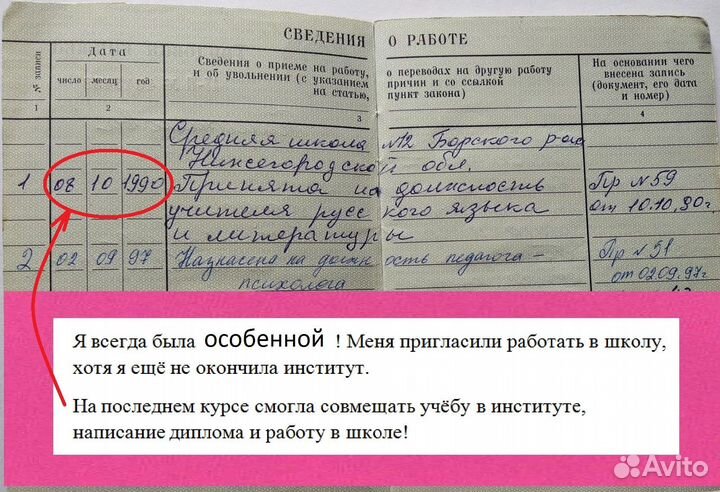 СВЕДЕНИЯ О РАБОТЕ
№ записи
Дата
число месяц год
Сведения о приеме на работу,
и об увольнении (с указанием
на статью,
о переводах на другую работу
причин и со ссылкой
пункт закона)
На основании чего
внесена запись
(документ, его дата
и номер)
1 2 3 4
Средняя школа №2 Борского р-на
Нижегородской обл.
1 08 10 1990 Принята на должность Пр №59
учителя русского языка от 10.10.90г.
и литературы
2 02 09 97 Назначена на должность педагога- Пр №51
психолога от 02.09.97г
Я всегда была особенной ! Меня пригласили работать в школу,
хотя я ещё не окончила институт.
На последнем курсе смогла совмещать учёбу в институте,
написание диплома и работу в школе!
Avito